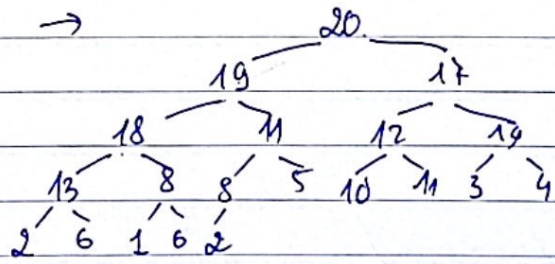 → 20
19 17
18 11 12 14
13 8 8 5 10 11 3 4
2 6 1 6 2